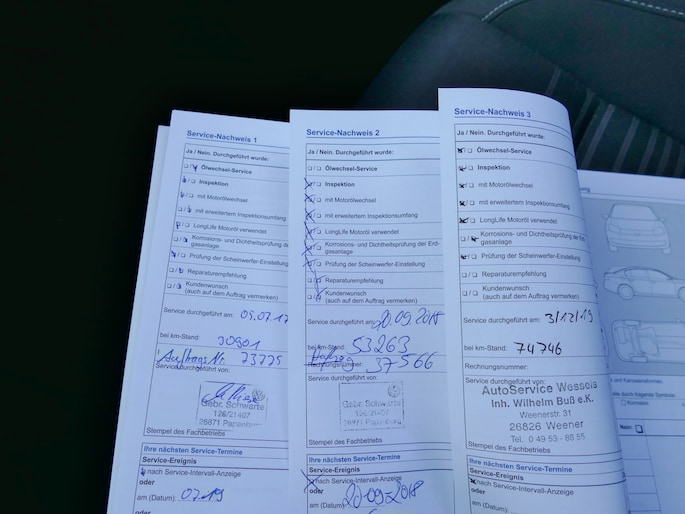 Service-Nachweis 1
Ja / Nein. Durchgeführt wurde:
Ölwechsel-Service
Inspektion
mit Motorölwechsel
mit erweitertem Inspektionsumfang
LongLife Motoröl verwendet
Korrosions- und Dichtheitsprüfung der Erd-
gasanlage
Prüfung der Scheinwerfer-Einstellung
Reparaturempfehlung
Kundenwunsch
(auch auf dem Auftrag vermerken)
Service durchgeführt am: 05.07.17
bei km-Stand: 30901
Auftrags Nr. 73775
Service durchgeführt von:
Gebr. Schwarte
126/21407
26871 Papenburg
Stempel des Fachbetriebs
Ihre nächsten Service-Termine
Service-Ereignis
nach Service-Intervall-Anzeige
oder
am (Datum): 07.19
Service-Nachweis 2
Ja / Nein. Durchgeführt wurde:
Ölwechsel-Service
Inspektion
mit Motorölwechsel
mit erweitertem Inspektionsumfang
LongLife Motoröl verwendet
Korrosions- und Dichtheitsprüfung der Erd-
gasanlage
Prüfung der Scheinwerfer-Einstellung
Reparaturempfehlung
Kundenwunsch
(auch auf dem Auftrag vermerken)
Service durchgeführt am: 20.09.2018
bei km-Stand: 53263
Rechnungsnummer: 37566
Service durchgeführt von:
Gebr. Schwarte
126/21407
26871 Papenburg
Stempel des Fachbetriebs
Ihre nächsten Service-Termine
Service-Ereignis
nach Service-Intervall-Anzeige
oder
am (Datum): 20-09-2018
Service-Nachweis 3
Ja / Nein. Durchgeführt wurde:
Ölwechsel-Service
Inspektion
mit Motorölwechsel
mit erweitertem Inspektionsumfang
LongLife Motoröl verwendet
Korrosions- und Dichtheitsprüfung der Erd-
gasanlage
Prüfung der Scheinwerfer-Einstellung
Reparaturempfehlung
Kundenwunsch
(auch auf dem Auftrag vermerken)
Service durchgeführt am: 3/12/19
bei km-Stand: 74746
Rechnungsnummer:
Service durchgeführt von:
AutoService Wessels
Inh. Wilhelm Buß e.K.
Weenerstr. 31
26826 Weener
Tel. 0 49 53 - 88 55
Stempel des Fachbetriebs
Ihre nächsten Service-Termine
Service-Ereignis
nach Service-Intervall-Anzeige
oder
am (Datum):
Nein: